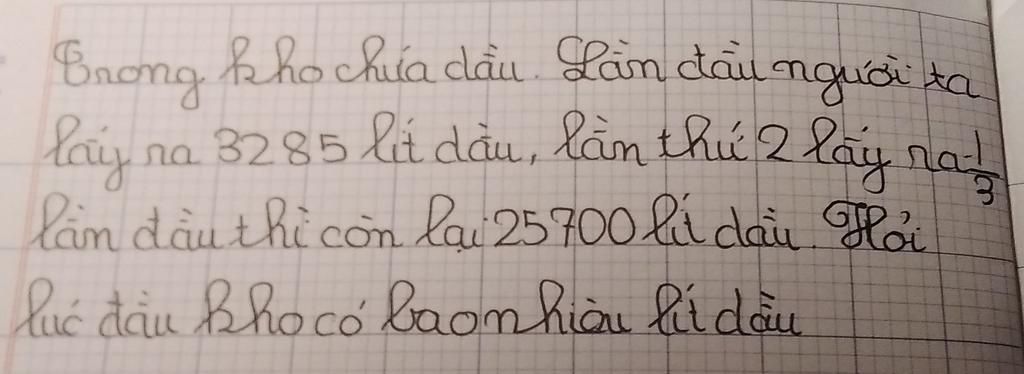 Trong kho chứa dầu. Lần đầu người ta
lấy ra 3285 lít dầu, lần thứ 2 lấy ra 1/3
lần đầu thì còn lại 25700 lít dầu. Hỏi
lúc đầu kho có bao nhiêu lít dầu